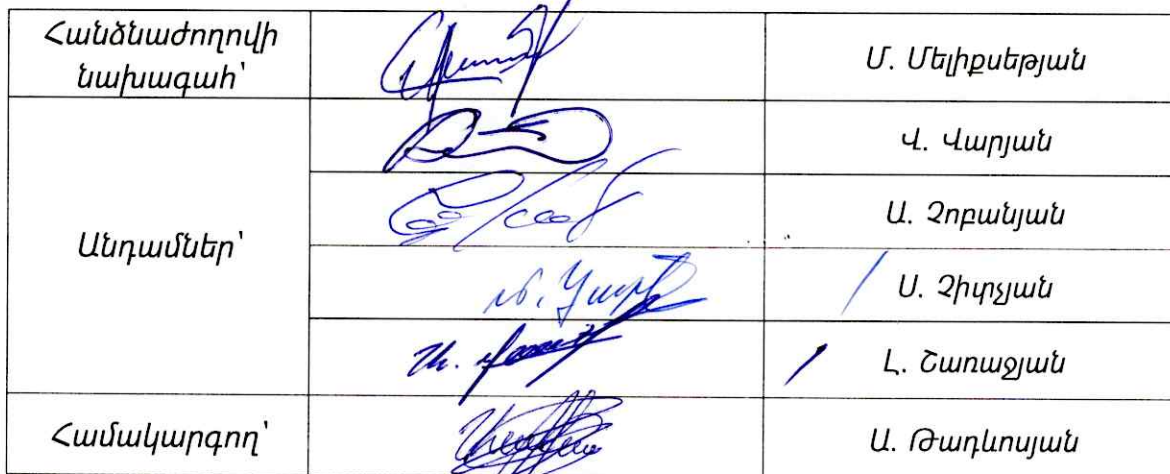 Հանձնաժողովի
նախագահ՝
Մ. Մելիքսեթյան
Վ. Վարյան
Ա. Չոբանյան
Անդամներ՝
Ս. Չիտչյան
Լ. Շառաջյան
Համակարգող՝
Ա. Թադևոսյան